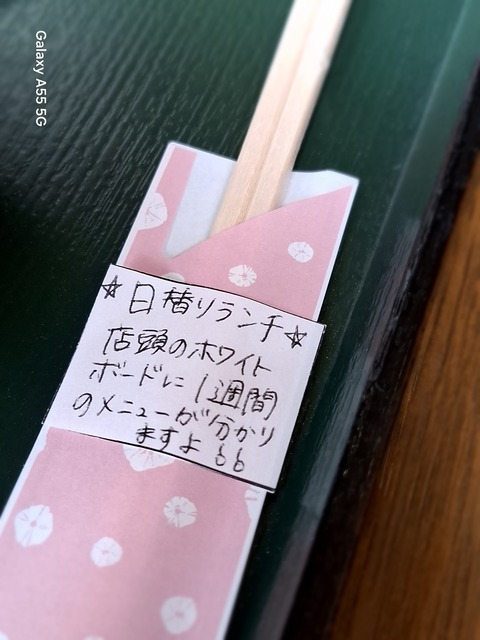 Galaxy A55 5G
☆日替りランチ☆
店頭のホワイト
ボードに1週間
のメニューが分かり
ますよ